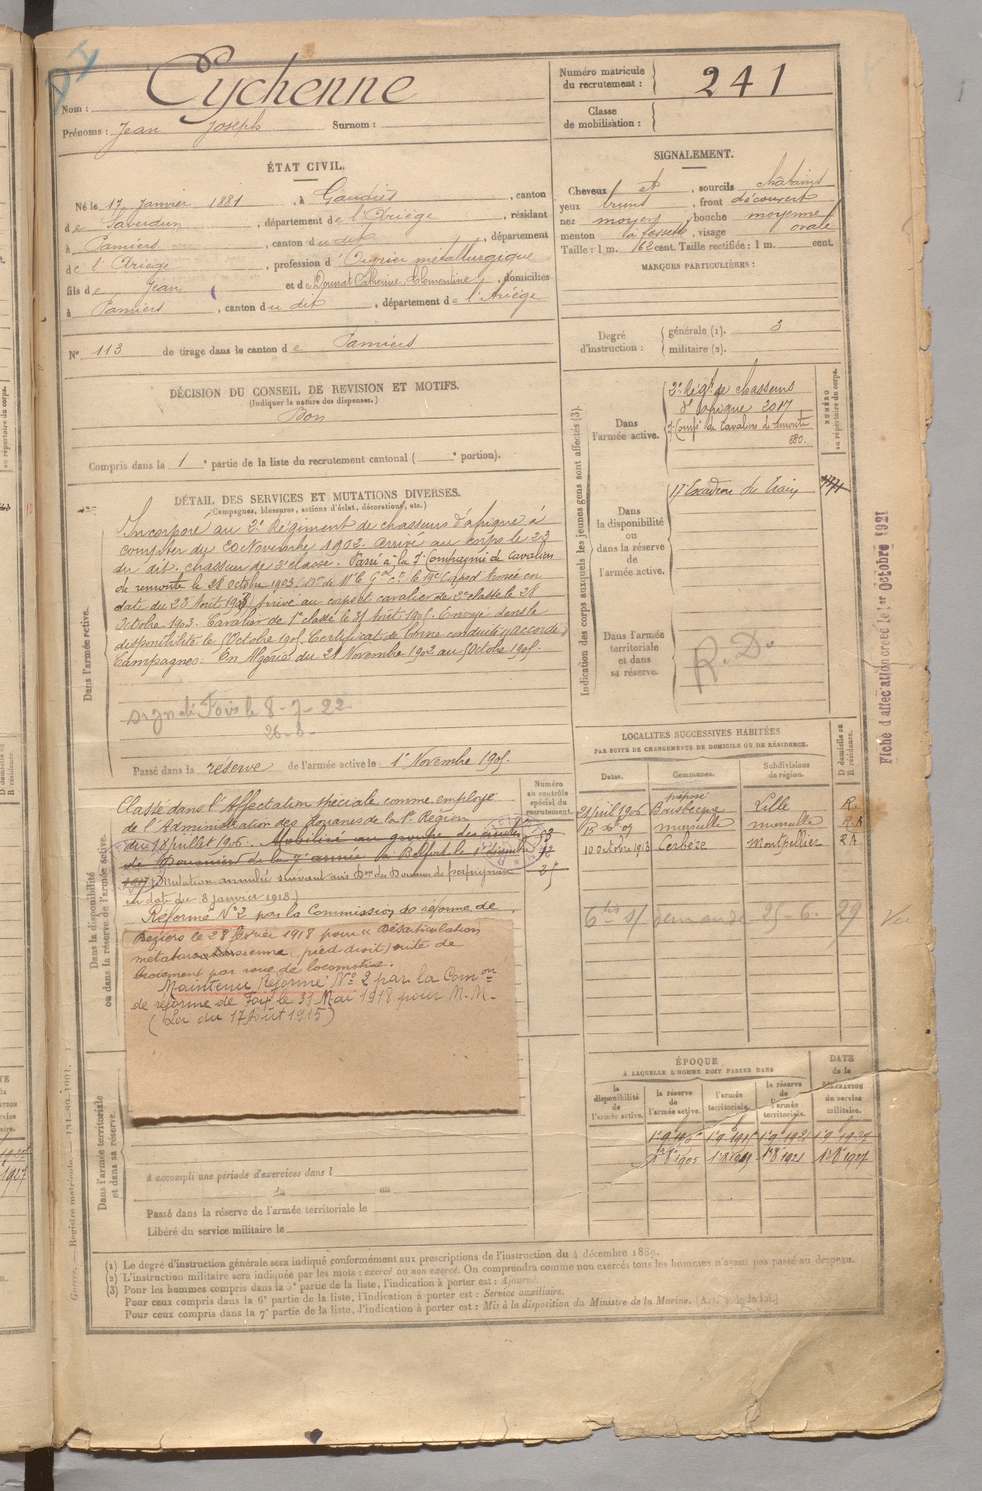 Nom : Eychenne
Prénoms : Jean Joseph Surnom :
Numéro matricule du recrutement : 241
Classe de mobilisation :
ÉTAT CIVIL.
Né le 17 Janvier 1881, à Gaudiès, canton
de Saverdun, département de l'Ariège, résidant
à Pamiers, canton du dit, département
de l'Ariège, profession d'Ouvrier métallurgique
fils de Jean et de Doumat Catherine Clémentine, domiciliés
à Pamiers, canton du dit, département de l'Ariège
N° 113 de tirage dans le canton de Pamiers
SIGNALEMENT.
Cheveux et, sourcils châtains
yeux bruns, front découvert
nez moyen, bouche moyenne
menton à fossette, visage ovale
Taille : 1 m. 62 cent. Taille rectifiée : 1 m. cent.
MARQUES PARTICULIÈRES :
Degré d'instruction : générale (1). 3
militaire (2).
DÉCISION DU CONSEIL DE REVISION ET MOTIFS.
(Indiquer la nature des dispenses.)
Bon
Compris dans la 1e partie de la liste du recrutement cantonal ( e portion).
DÉTAIL DES SERVICES ET MUTATIONS DIVERSES.
(Campagnes, blessures, actions d'éclat, décorations, etc.)
Dans l'armée active.
Incorporé au 2e Régiment de chasseurs d'afrique à
compter du 20 Novembre 1902. Arrivé au corps le 23
du dit. chasseur de 2e classe. Passé à la 7e Compagnie de Cavaliers
de remonte le 28 octobre 1903 de Mr le Gal Ct le 19e Corps d'Armée en
date du 25 Août 1903) Arrivé au corps et cavalier de 2e classe le 28
Octobre 1903. Cavalier de 1e classe le 31 Août 1905. Envoyé dans la
disponibilité le Octobre 1905. Certificat de bonne conduite accordé
Campagnes : En Algérie du 21 Novembre 1902 au Octobre 1905.
Signalé Foix le 8-7-22
26-6-
Passé dans la réserve de l'armée active le 1er Novembre 1905
Indication des corps auxquels les jeunes gens sont affectés (3).
NUMÉRO au répertoire du corps.
Dans l'armée active.
2e Régt de chasseurs
d'afrique 2017
7e Compie de Cavaliers de remonte
880.
Dans la disponibilité ou dans la réserve de l'armée active.
17e Escadron du Train
Dans l'armée territoriale et dans sa réserve.
R. De
Fiche d'affectation créée le 1er Octobre 1921
Dans la disponibilité ou dans la réserve de l'armée active.
Numéro au contrôle spécial du recrutement.
Classé dans l'Affectation spéciale comme employé
de l'Administration des Douanes de la 1e Région
du 18 juillet 1906. Mobilisé au groupe des
de Douaniers de la 7e armée à Belfort le 1er décembre
1917 (Mutation annulée suivant avis Don des Douanes de Perpignan
en date du 8 janvier 1918)
Réformé N° 2 par la Commission de réforme de
Béziers le 28 février 1918 pour "Désarticulation
métatarsienne, pied droit) suite de
broiement par roue de locomotive.
Maintenu Réformé N° 2 par la Comon
de réforme de Foix le 31 Mai 1918 pour M.M-
(Loi du 17 Août 1915)
LOCALITÉS SUCCESSIVES HABITÉES
PAR SUITE DE CHANGEMENTS DE DOMICILE OU DE RÉSIDENCE.
Dates. Communes. Subdivisions de région. D domicile ou R résidence.
préposé
21 avril 1906 Boesbecque Lille R.
13 Xbre 09 Marseille Marseille R.A
10 Octobre 1913 Cerbère Montpellier R.A
demande 25-6-29
ÉPOQUE
À LAQUELLE L'HOMME DOIT PASSER DANS
DATE de la LIBÉRATION du service militaire.
la disponibilité de l'armée active. la réserve de l'armée active. l'armée territoriale. la réserve de l'armée territoriale.
1er 9 1905 1er 9 1915 1er 9 1921 1er 9 1927
1er 8 1905 1er 8 1921 1er 8 1927
Dans l'armée territoriale et dans sa réserve.
a accompli une période d'exercices dans l
du au
Passé dans la réserve de l'armée territoriale le
Libéré du service militaire le
(1) Le degré d'instruction générale sera indiqué conformément aux prescriptions de l'instruction du 4 décembre 1889.
(2) L'instruction militaire sera indiquée par les mots : exercé ou non exercé. On comprendra comme non exercés tous les hommes n'ayant pas passé au drapeau.
(3) Pour les hommes compris dans la 5e partie de la liste, l'indication à porter est : Ajourné.
Pour ceux compris dans la 6e partie de la liste, l'indication à porter est : Service auxiliaire.
Pour ceux compris dans la 7e partie de la liste, l'indication à porter est : Mis à la disposition du Ministre de la Marine.